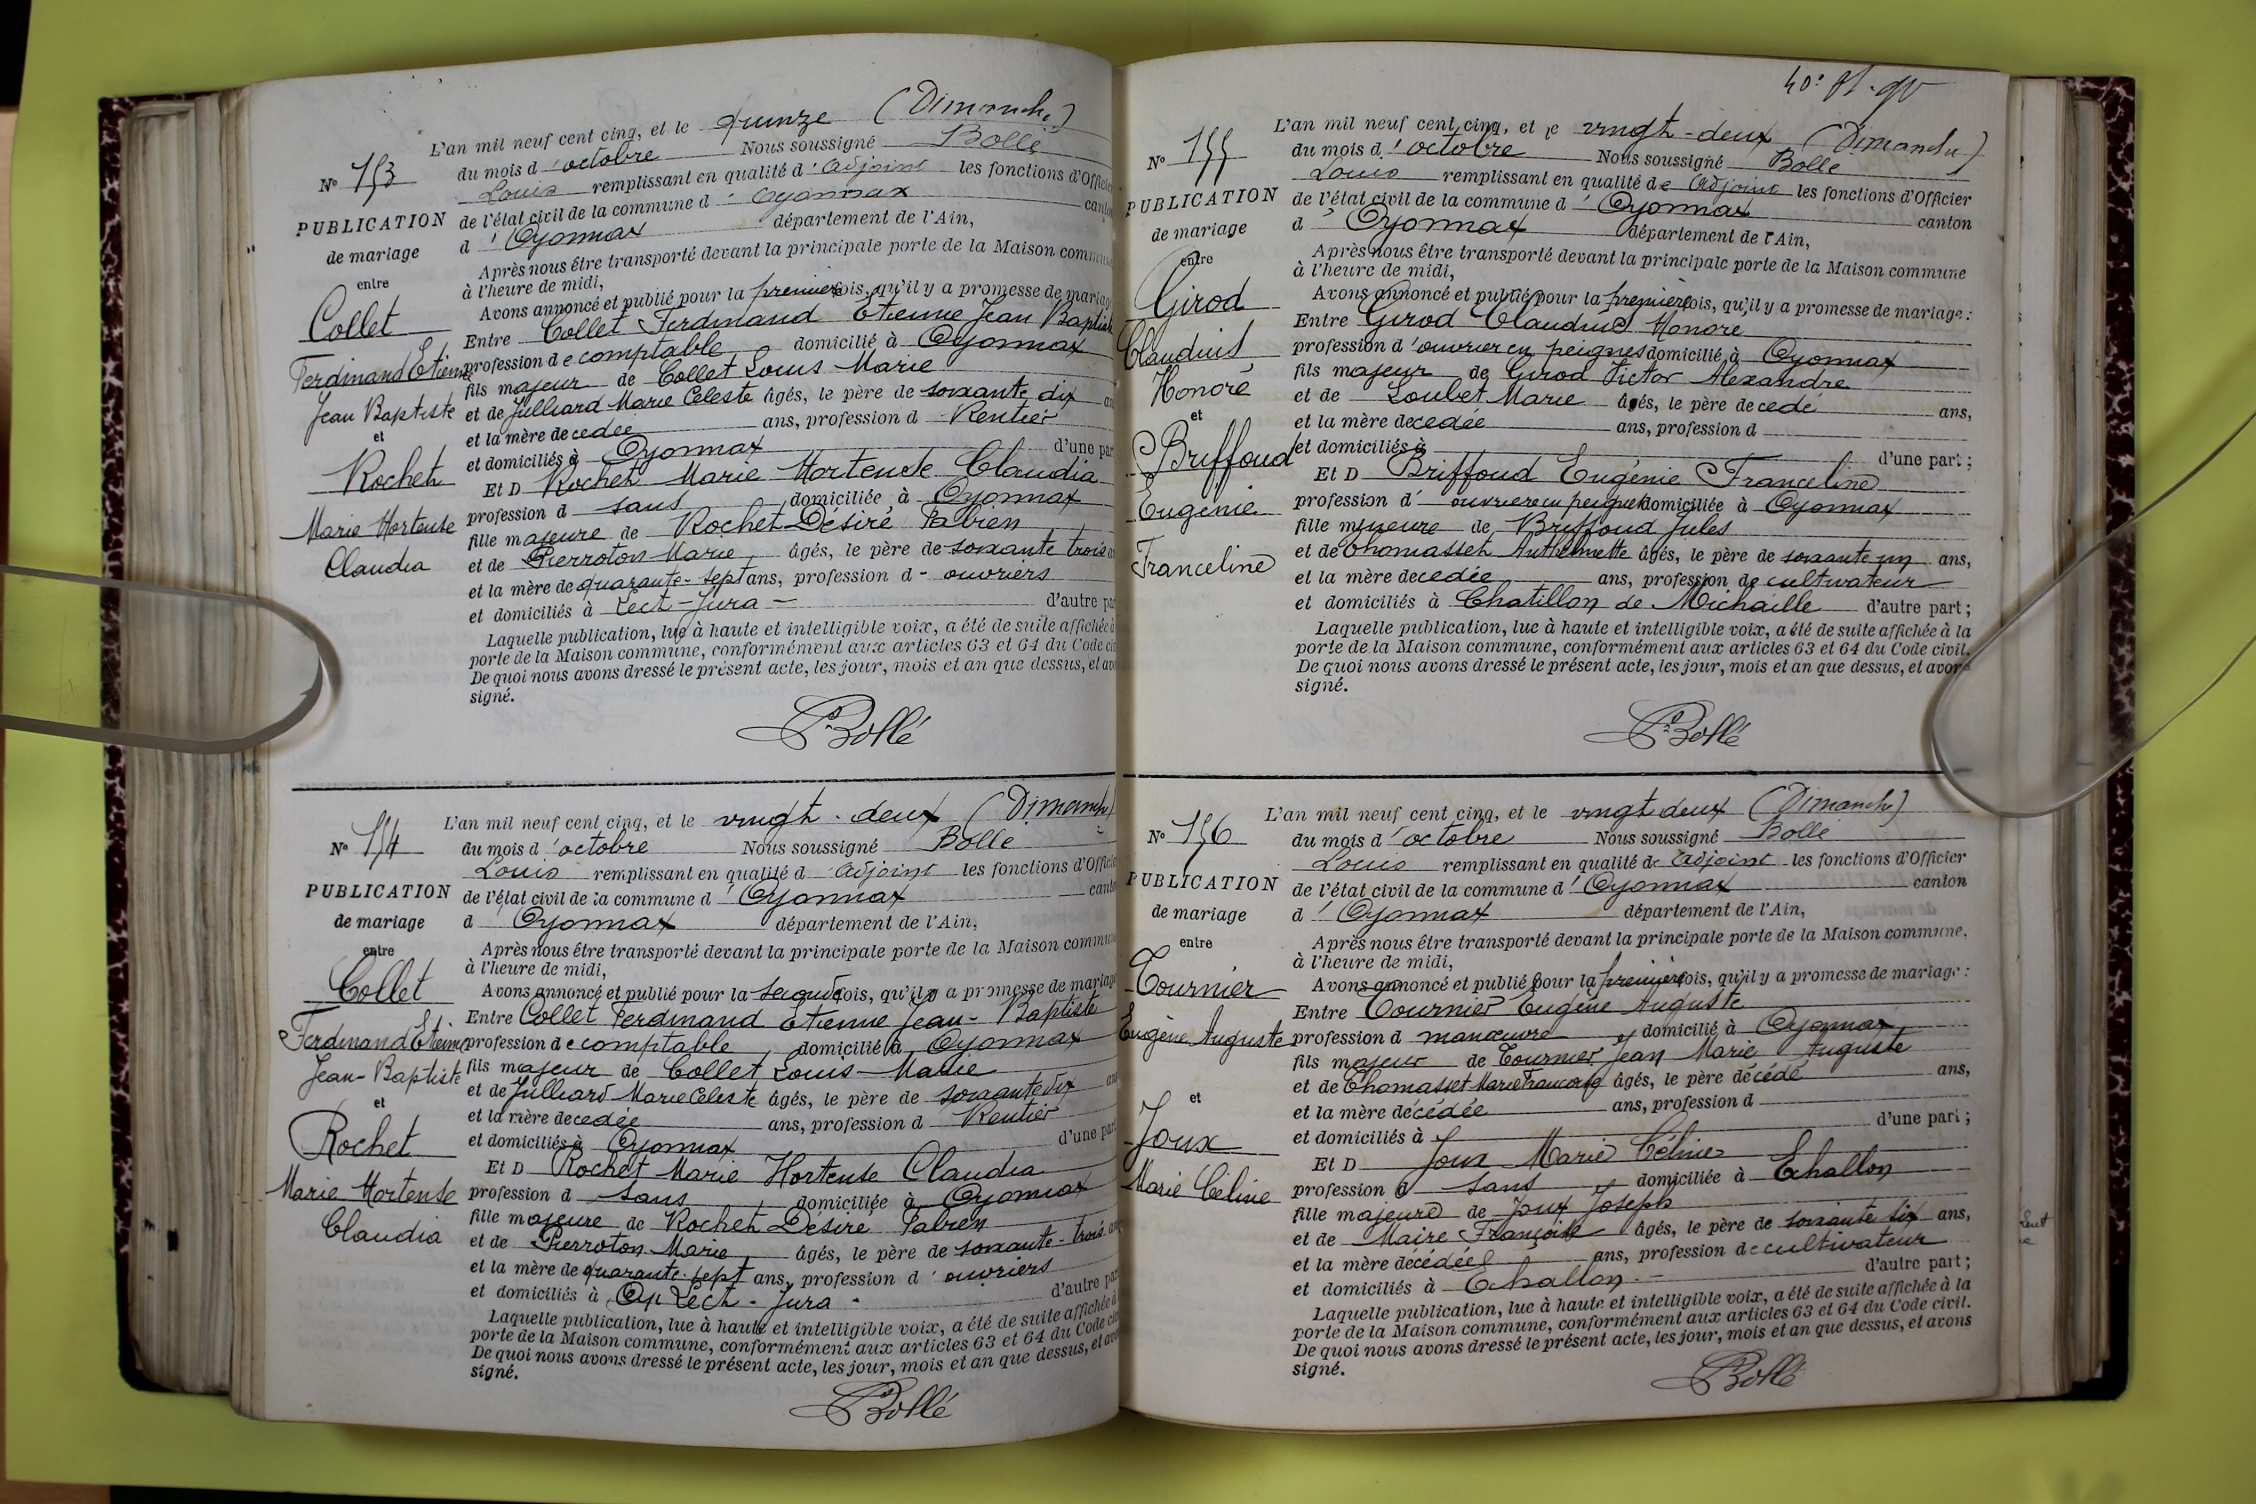 L'an mil neuf cent cinq, et le quinze (Dimanche)
N° 153
du mois d'octobre Nous soussigné Bollé
Louis remplissant en qualité d'adjoint les fonctions d'Officier
PUBLICATION
de l'état civil de la commune d'Oyonnax canton
de mariage
d'Oyonnax département de l'Ain,
entre
Après nous être transporté devant la principale porte de la Maison commune
à l'heure de midi,
Avons annoncé et publié pour la première fois, qu'il y a promesse de mariage
Collet
Entre Collet Ferdinand Etienne Jean Baptiste
Ferdinand Etienne
profession de comptable domicilié à Oyonnax
fils majeur de Collet Louis Marie
Jean Baptiste
et de Julliard Marie Celeste âgés, le père de soixante dix
et
et la mère decedée ans, profession d Rentier
et domiciliés à Oyonnax d'une part
Rochet
Et D Rochet Marie Hortense Claudia
Marie Hortense
profession d sans domiciliée à Oyonnax
fille majeure de Rochet Désiré Fabien
Claudia
et de Pierroton Marie âgés, le père de soixante trois
et la mère de quarante-sept ans, profession d - ouvriers
et domiciliés à Lect-Jura - d'autre part
Laquelle publication, lue à haute et intelligible voix, a été de suite affichée à
porte de la Maison commune, conformément aux articles 63 et 64 du Code
De quoi nous avons dressé le présent acte, les jour, mois et an que dessus, et
signé.
Bollé
L'an mil neuf cent cinq, et le vingt-deux (Dimanche)
N° 154
du mois d'octobre Nous soussigné Bollé
Louis remplissant en qualité d'adjoint les fonctions d'Officier
PUBLICATION
de l'état civil de la commune d'Oyonnax canton
de mariage
d Oyonnax département de l'Ain,
entre
Après nous être transporté devant la principale porte de la Maison commune
à l'heure de midi,
Collet
Avons annoncé et publié pour la seconde fois, qu'il y a promesse de mariage
Entre Collet Ferdinand Etienne Jean-Baptiste
Ferdinand Etienne
profession de comptable domicilié à Oyonnax
Jean-Baptiste
fils majeur de Collet Louis-Marie
et de Julliard Marie Celeste âgés, le père de soixante dix
et
et la mère decedée ans, profession d Rentier
Rochet
et domiciliés à Oyonnax d'une part
Et D Rochet Marie Hortense Claudia
Marie Hortense
profession d sans domiciliée à Oyonnax
Claudia
fille majeure de Rochet Désiré Fabien
et de Pierroton Marie âgés, le père de soixante-trois
et la mère de quarante-sept ans, profession d'ouvriers
et domiciliés à Lect-Jura - d'autre part
Laquelle publication, lue à haute et intelligible voix, a été de suite affichée à
porte de la Maison commune, conformément aux articles 63 et 64 du Code
De quoi nous avons dressé le présent acte, les jour, mois et an que dessus, et
signé.
Bollé
L'an mil neuf cent cinq, et le vingt-deux (Dimanche)
N° 155
du mois d'octobre Nous soussigné Bollé
Louis remplissant en qualité de adjoint les fonctions d'Officier
PUBLICATION
de l'état civil de la commune d'Oyonnax canton
de mariage
d'Oyonnax département de l'Ain,
entre
Après nous être transporté devant la principale porte de la Maison commune
à l'heure de midi,
Girod
Avons annoncé et publié pour la première fois, qu'il y a promesse de mariage :
Entre Girod Claudius Honoré
Claudius
profession d'ouvrier en peignes domicilié à Oyonnax
Honoré
fils majeur de Girod Victor Alexandre
et de Loubet Marie âgés, le père decedé ans,
et
et la mère decedée ans, profession d
Briffoud
et domiciliés à d'une part ;
Et D Briffoud Eugénie Franceline
Eugénie
profession d'ouvriere en peignes domiciliée à Oyonnax
fille mineure de Briffoud Jules
Franceline
et de Thomasset Anthelmette âgés, le père de soixante un ans,
et la mère decedée ans, profession de cultivateur
et domiciliés à Chatillon de Michaille d'autre part ;
Laquelle publication, lue à haute et intelligible voix, a été de suite affichée à la
porte de la Maison commune, conformément aux articles 63 et 64 du Code civil.
De quoi nous avons dressé le présent acte, les jour, mois et an que dessus, et avons
signé.
Bollé
L'an mil neuf cent cinq, et le vingt deux (Dimanche)
N° 156
du mois d'octobre Nous soussigné Bollé
Louis remplissant en qualité de adjoint les fonctions d'Officier
PUBLICATION
de l'état civil de la commune d'Oyonnax canton
de mariage
d'Oyonnax département de l'Ain,
entre
Après nous être transporté devant la principale porte de la Maison commune,
à l'heure de midi,
Tournier
Avons annoncé et publié pour la première fois, qu'il y a promesse de mariage :
Entre Tournier Eugène Auguste
Eugène Auguste
profession d manœuvre domicilié à Oyonnax
fils majeur de Tournier Jean Marie Auguste
et de Thomasset Marie Françoise âgés, le père décédé ans,
et
et la mère décédée ans, profession d
Joux
et domiciliés à d'une part ;
Et D Joux Marie Céline
Marie Céline
profession d sans domiciliée à Echallon
fille majeure de Joux Joseph
et de Maire Françoise âgés, le père de soixante six ans,
et la mère décédée ans, profession de cultivateur
et domiciliés à Echallon - d'autre part ;
Laquelle publication, lue à haute et intelligible voix, a été de suite affichée à la
porte de la Maison commune, conformément aux articles 63 et 64 du Code civil.
De quoi nous avons dressé le présent acte, les jour, mois et an que dessus, et avons
signé.
Bollé